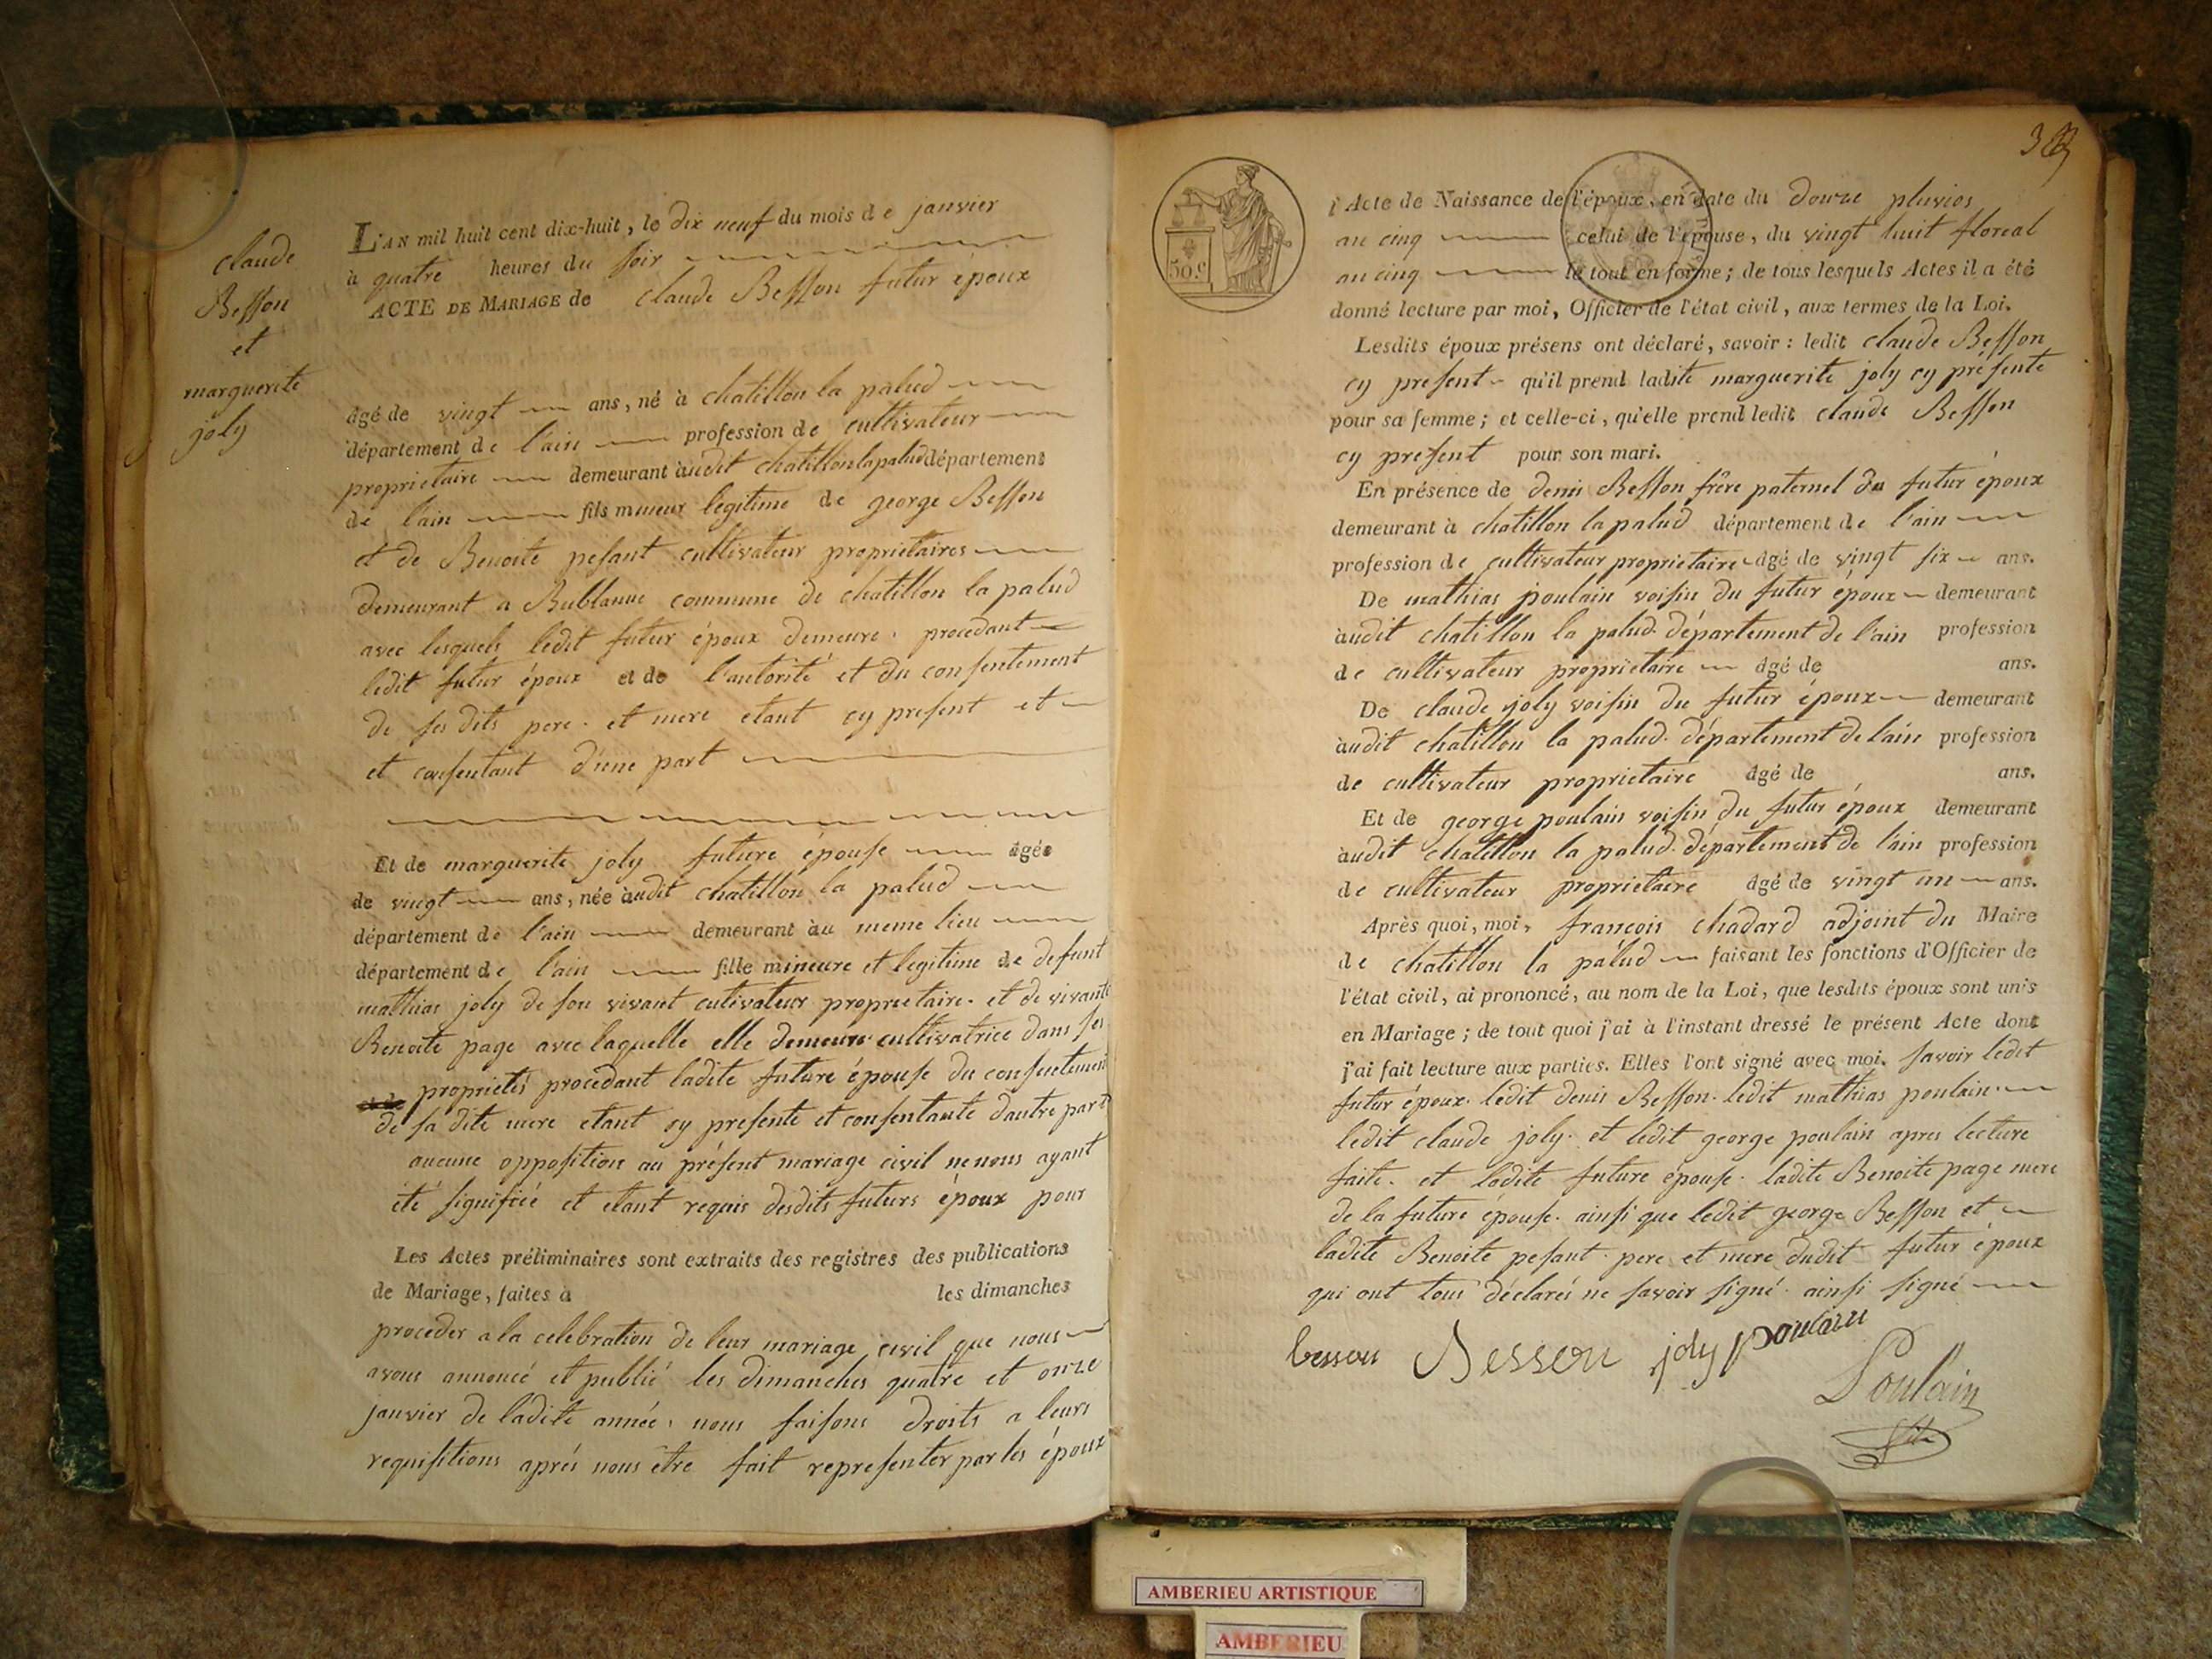 claude
Besson
et
marguerite
joly
L'AN mil huit cent dix-huit, le dix neuf du mois de janvier
à quatre heures du soir
ACTE DE MARIAGE de claude Besson futur époux
âgé de vingt ans, né à chatillon la palud
département de l'ain profession de cultivateur
proprietaire demeurant àudit chatillon la palud département
de l'ain fils mineur legitime de george Besson
et de Benoite pesant cultivateur proprietaires
demeurant a Bublanne commune de chatillon la palud
avec lesquels ledit futur époux demeure. procedant
ledit futur époux et de l'autorité et du consentement
de ses dits pere. et mere etant cy present et
et consentant d'une part
Et de marguerite joly future épouse âgée
de vingt ans, née àudit chatillon la palud
département de l'ain demeurant àu meme lieu
département de l'ain fille mineure et legitime de defunt
mathias joly de son vivant cutivateur proprietaire. et de vivante
Benoite page avec laquelle elle demeure cultivatrice dans ses
proprietés procedant ladite future épouse du consentement
de sa dite mere etant cy presente et consentante dautre part
aucune opposition au présent mariage civil ne nous ayant
été signifiée et etant requis desdits futurs époux pour
Les Actes préliminaires sont extraits des registres des publications
de Mariage, faites à les dimanches
proceder a la celebration de leur mariage civil que nous
avons annoncé et publié les dimanches quatre et onze
janvier de ladite année. nous faisons droits a leurs
requisitions aprés nous être fait representer par les époux
50 c
l'Acte de Naissance de l'époux, en date du douze pluvios
an cinq celui de l'épouse, du vingt huit floreal
an cinq le tout en forme; de tous lesquels Actes il a été
donné lecture par moi, Officier de l'état civil, aux termes de la Loi.
Lesdits époux présens ont déclaré, savoir: ledit claude Besson
cy present qu'il prend ladite marguerite joly cy présente
pour sa femme; et celle-ci, qu'elle prend ledit claude Besson
cy present pour son mari.
En présence de denis Besson frère paternel du futur époux
demeurant à chatillon la palud département de l'ain
profession de cultivateur proprietaire âgé de vingt six ans.
De mathias poulain voisin du futur époux demeurant
àudit chatillon la palud. département de l'ain profession
de cultivateur proprietaire âgé de ans.
De claude joly voisin du futur époux demeurant
àudit chatillon la palud. département de l'ain profession
de cultivateur proprietaire âgé de ans.
Et de george poulain voisin du futur époux demeurant
àudit chatillon la palud. département de l'ain profession
de cultivateur proprietaire âgé de vingt un ans.
Après quoi, moi, françois chadard adjoint du Maire
de chatillon la palud faisant les fonctions d'Officier de
l'état civil, ai prononcé, au nom de la Loi, que lesdits époux sont unis
en Mariage; de tout quoi j'ai à l'instant dressé le présent Acte dont
j'ai fait lecture aux parties. Elles l'ont signé avec moi. savoir ledit
futur époux. ledit denis Besson. ledit mathias poulain.
ledit claude joly. et ledit george poulain apres lecture
faite. et ladite future épouse. ladite Benoite page mere
de la future épouse. ainsi que ledit george Besson et
ladite Benoite pesant. pere et mere dudit futur époux
qui ont tous déclarés ne savoir signé. ainsi signé
besson Besson joly poulain
Poulain
AMBERIEU ARTISTIQUE
AMBERIEU